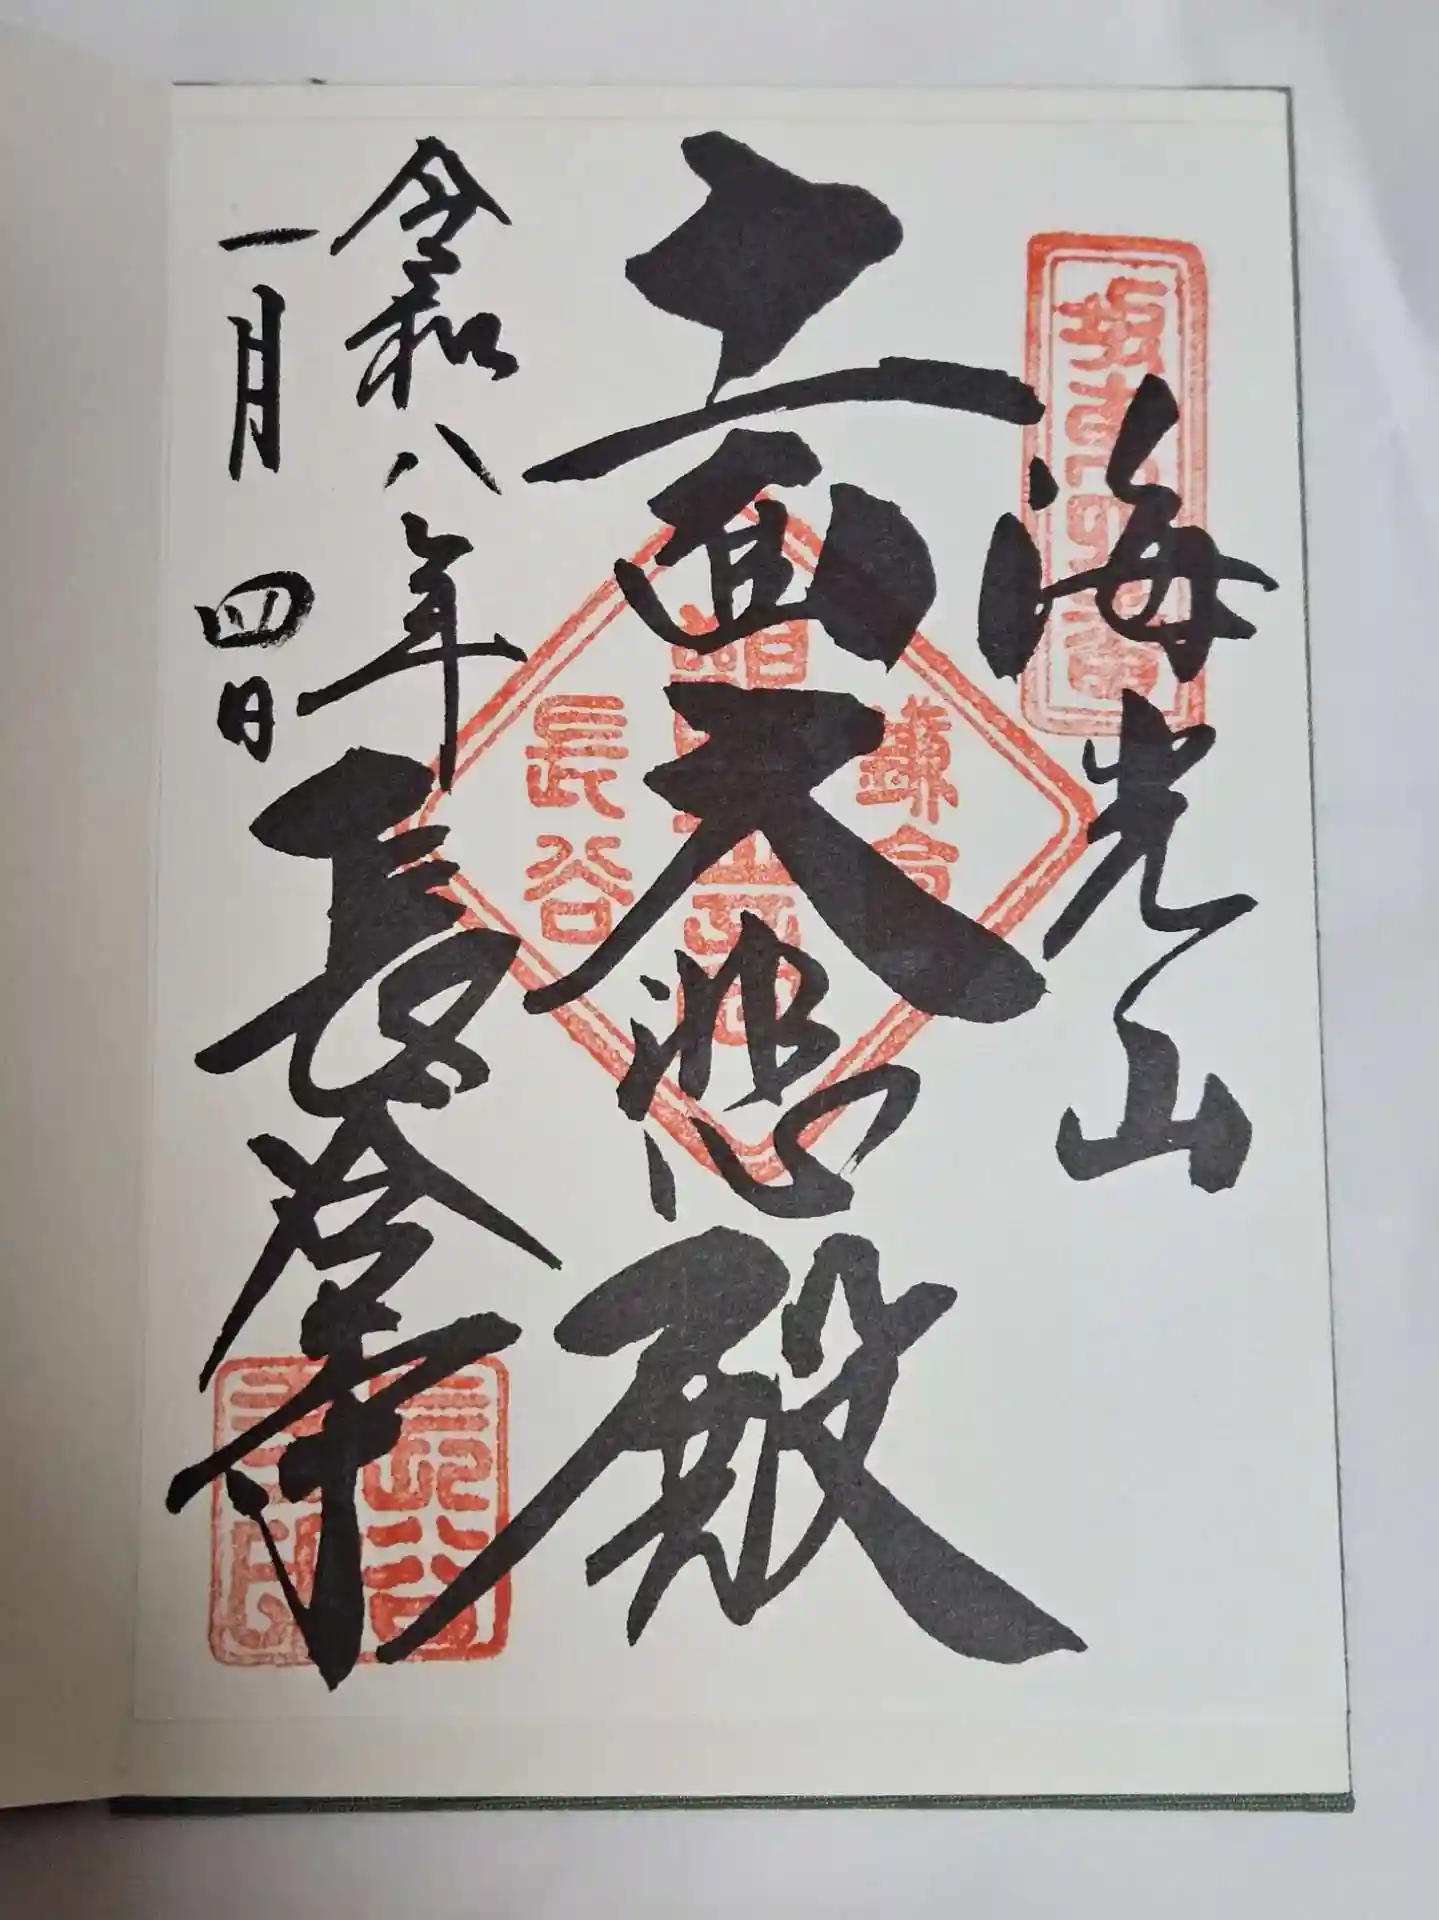 坂東四番
海光山
十一面大悲殿
鎌倉
長谷
令和八年
一月四日
長谷寺